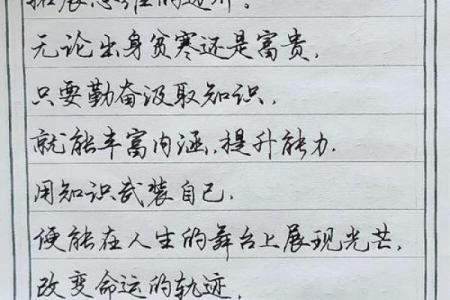 拓展思维的边界.
无论出身贫寒还是富贵,
只要勤奋汲取知识,
就能丰富内涵,提升能力.
用知识武装自己.
便能在人生的舞台上展现光芒,
改变命运的轨迹.